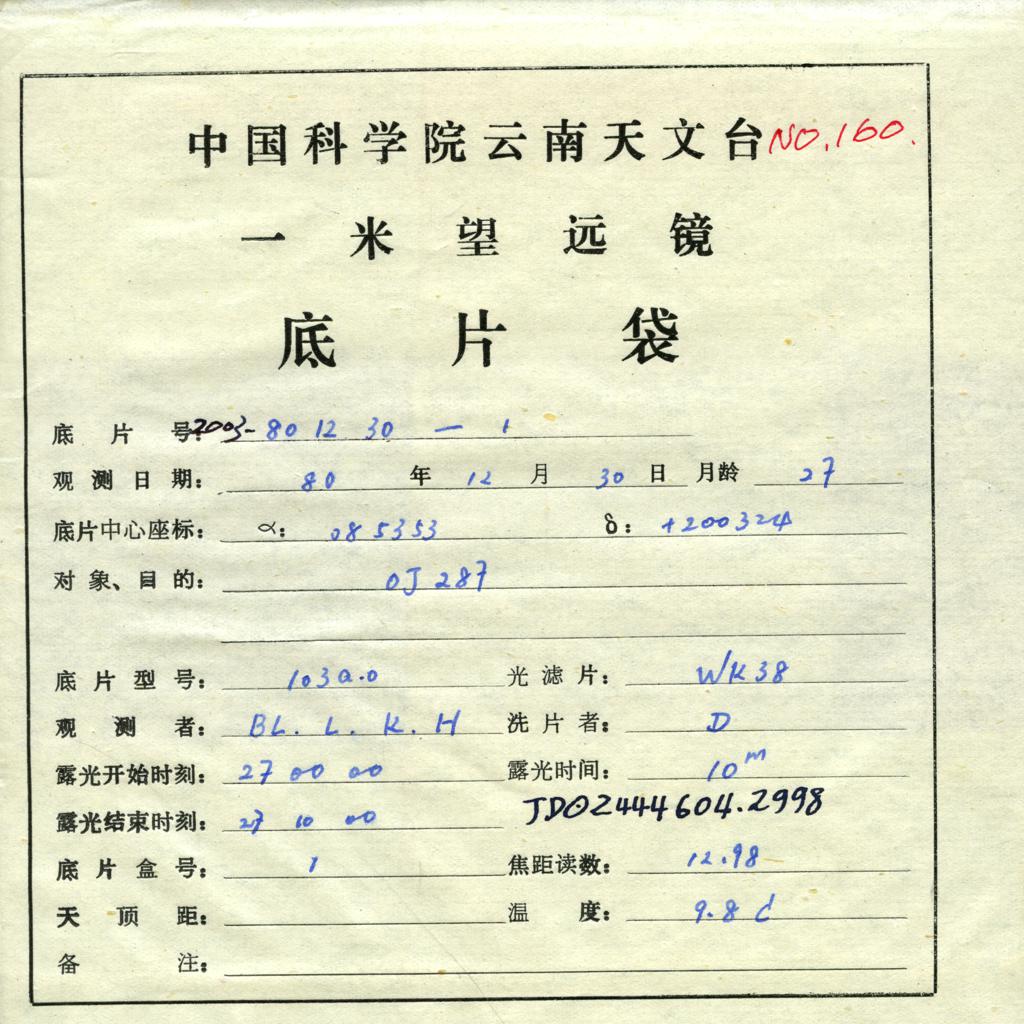 中国科学院云南天文台 NO.160.
一米望远镜
底片袋
底片号: 2003-801230-1
观测日期: 80年12月30日 月龄 27
底片中心座标: α: 085353 δ: +200324
对象、目的: OJ 287
底片型号: 103a.0 光滤片: WK38
观测者: BL. L. K. H 洗片者: D
露光开始时刻: 27 00 00 露光时间: 10m
露光结束时刻: 27 10 00 JD⊙2444604.2998
底片盒号: 1 焦距读数: 12.98
天顶距: 温度: 9.8
备注: